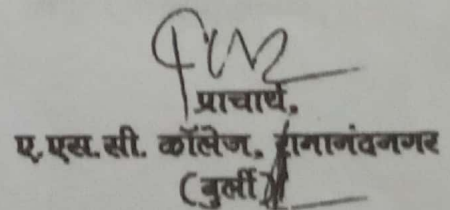 प्राचार्य,
ए.एस.सी. कॉलेज, रामानंदनगर
(बुर्ली)